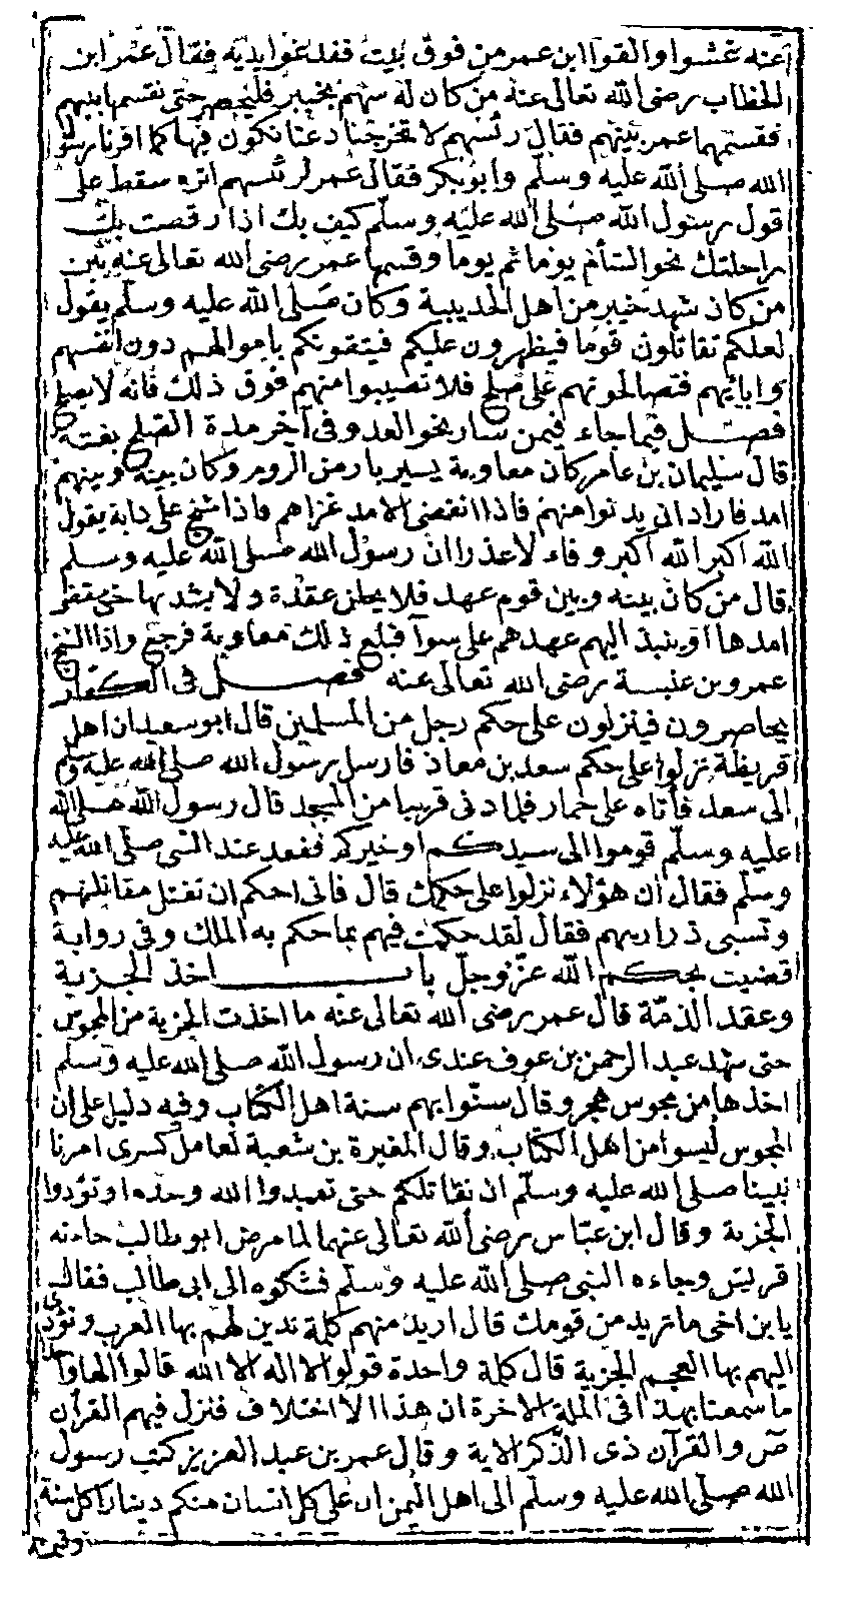 عنه غشوا والقوا ابن عمر من فوق بيت ففدغوا يديه فقال عمر ابن
الخطاب رضى الله تعالى عنه من كان له سهم بخيبر فليحضر حتى نقسمها بينهم
فقسمها عمر بينهم فقال رئسهم لا تخرجنا دعنا نكون فيها كما اقرنا رسول
الله صلى الله عليه وسلم وابو بكر فقال عمر لرئسهم اتره سقط على
قول رسول الله صلى الله عليه وسلم كيف بك اذا رقصت بك
راحلتك نحو الشام يوما ثم يوما وقسمها عمر رضى الله تعالى عنه بين
من كان شهد خيبر من اهل الحديبية وكان صلى الله عليه وسلم يقول
لعلكم تقاتلون قوما فيظهرون عليكم فيتقونكم باموالهم دون انفسهم
وابائهم فتصالحونهم على صلح فلا تصيبوا منهم فوق ذلك فانه لا يصلح
فصل فيما جاء فيمن سار نحو العدو فى آخر مدة الصلح بغتة
قال سليمان بن عامر كان معاوية يسير بارض الروم وكان بينه وبينهم
امد فاراد ان يدنوا منهم فاذا انقضى الامد غزاهم فاذا شيخ على دابة يقول
الله اكبر الله اكبر وفاء لا عذرا ان رسول الله صلى الله عليه وسلم
قال من كان بينه وبين قوم عهد فلا يحلن عقدة ولا يشدها حتى ينقضى
امدها او ينبذ اليهم عهدهم على سوآ فبلغ ذلك معاوية فرجع واذا الشيخ
عمرو بن عنبسة رضى الله تعالى عنه فصل فى الكفار
يحاصرون فينزلون على حكم رجل من المسلمين قال ابو سعيد ان اهل
قريظة نزلوا على حكم سعد بن معاذ فارسل رسول الله صلى الله عليه وسلم
الى سعد فأتاه على حمار فلما دنى قريبا من المسجد قال رسول الله صلى الله
عليه وسلم قوموا الى سيدكم او خيركم فقعد عند النبى صلى الله عليه
وسلم فقال ان هؤلاء نزلوا على حكمك قال فانى احكم ان تقتل مقاتلتهم
وتسبى ذراريهم فقال لقد حكمت فيهم بما حكم به الملك وفى رواية
قضيت بحكم الله عز وجل باب اخذ الجزية
وعقد الذمة قال عمر رضى الله تعالى عنه ما اخذت الجزية من المجوس
حتى شهد عبد الرحمن بن عوف عندى ان رسول الله صلى الله عليه وسلم
اخذها من مجوس هجر وقال سنوا بهم سنة اهل الكتاب وفيه دليل على ان
المجوس ليسوا من اهل الكتاب وقال المغيرة بن شعبة لعامل كسرى امرنا
نبينا صلى الله عليه وسلم ان نقاتلكم حتى تعبدوا الله وحده او تؤدوا
الجزية وقال ابن عباس رضى الله تعالى عنهما لما مرض ابو طالب جاءته
قريش وجاءه النبى صلى الله عليه وسلم فشكوه الى ابى طالب فقال
يا ابن اخى ما تريد من قومك قال اريد منهم كلمة تدين لهم بها العرب وتؤدى
اليهم بها العجم الجزية قال كلمة واحدة قولوا لا اله الا الله قالوا الها واحدا
ما سمعنا بهذا فى الملة الاخرة ان هذا الا اختلاف فنزل فيهم القرآن
ص والقرآن ذى الذكر الاية وقال عمر بن عبد العزيز كتب رسول
الله صلى الله عليه وسلم الى اهل اليمن ان على كل انسان منكم دينارا كل سنة